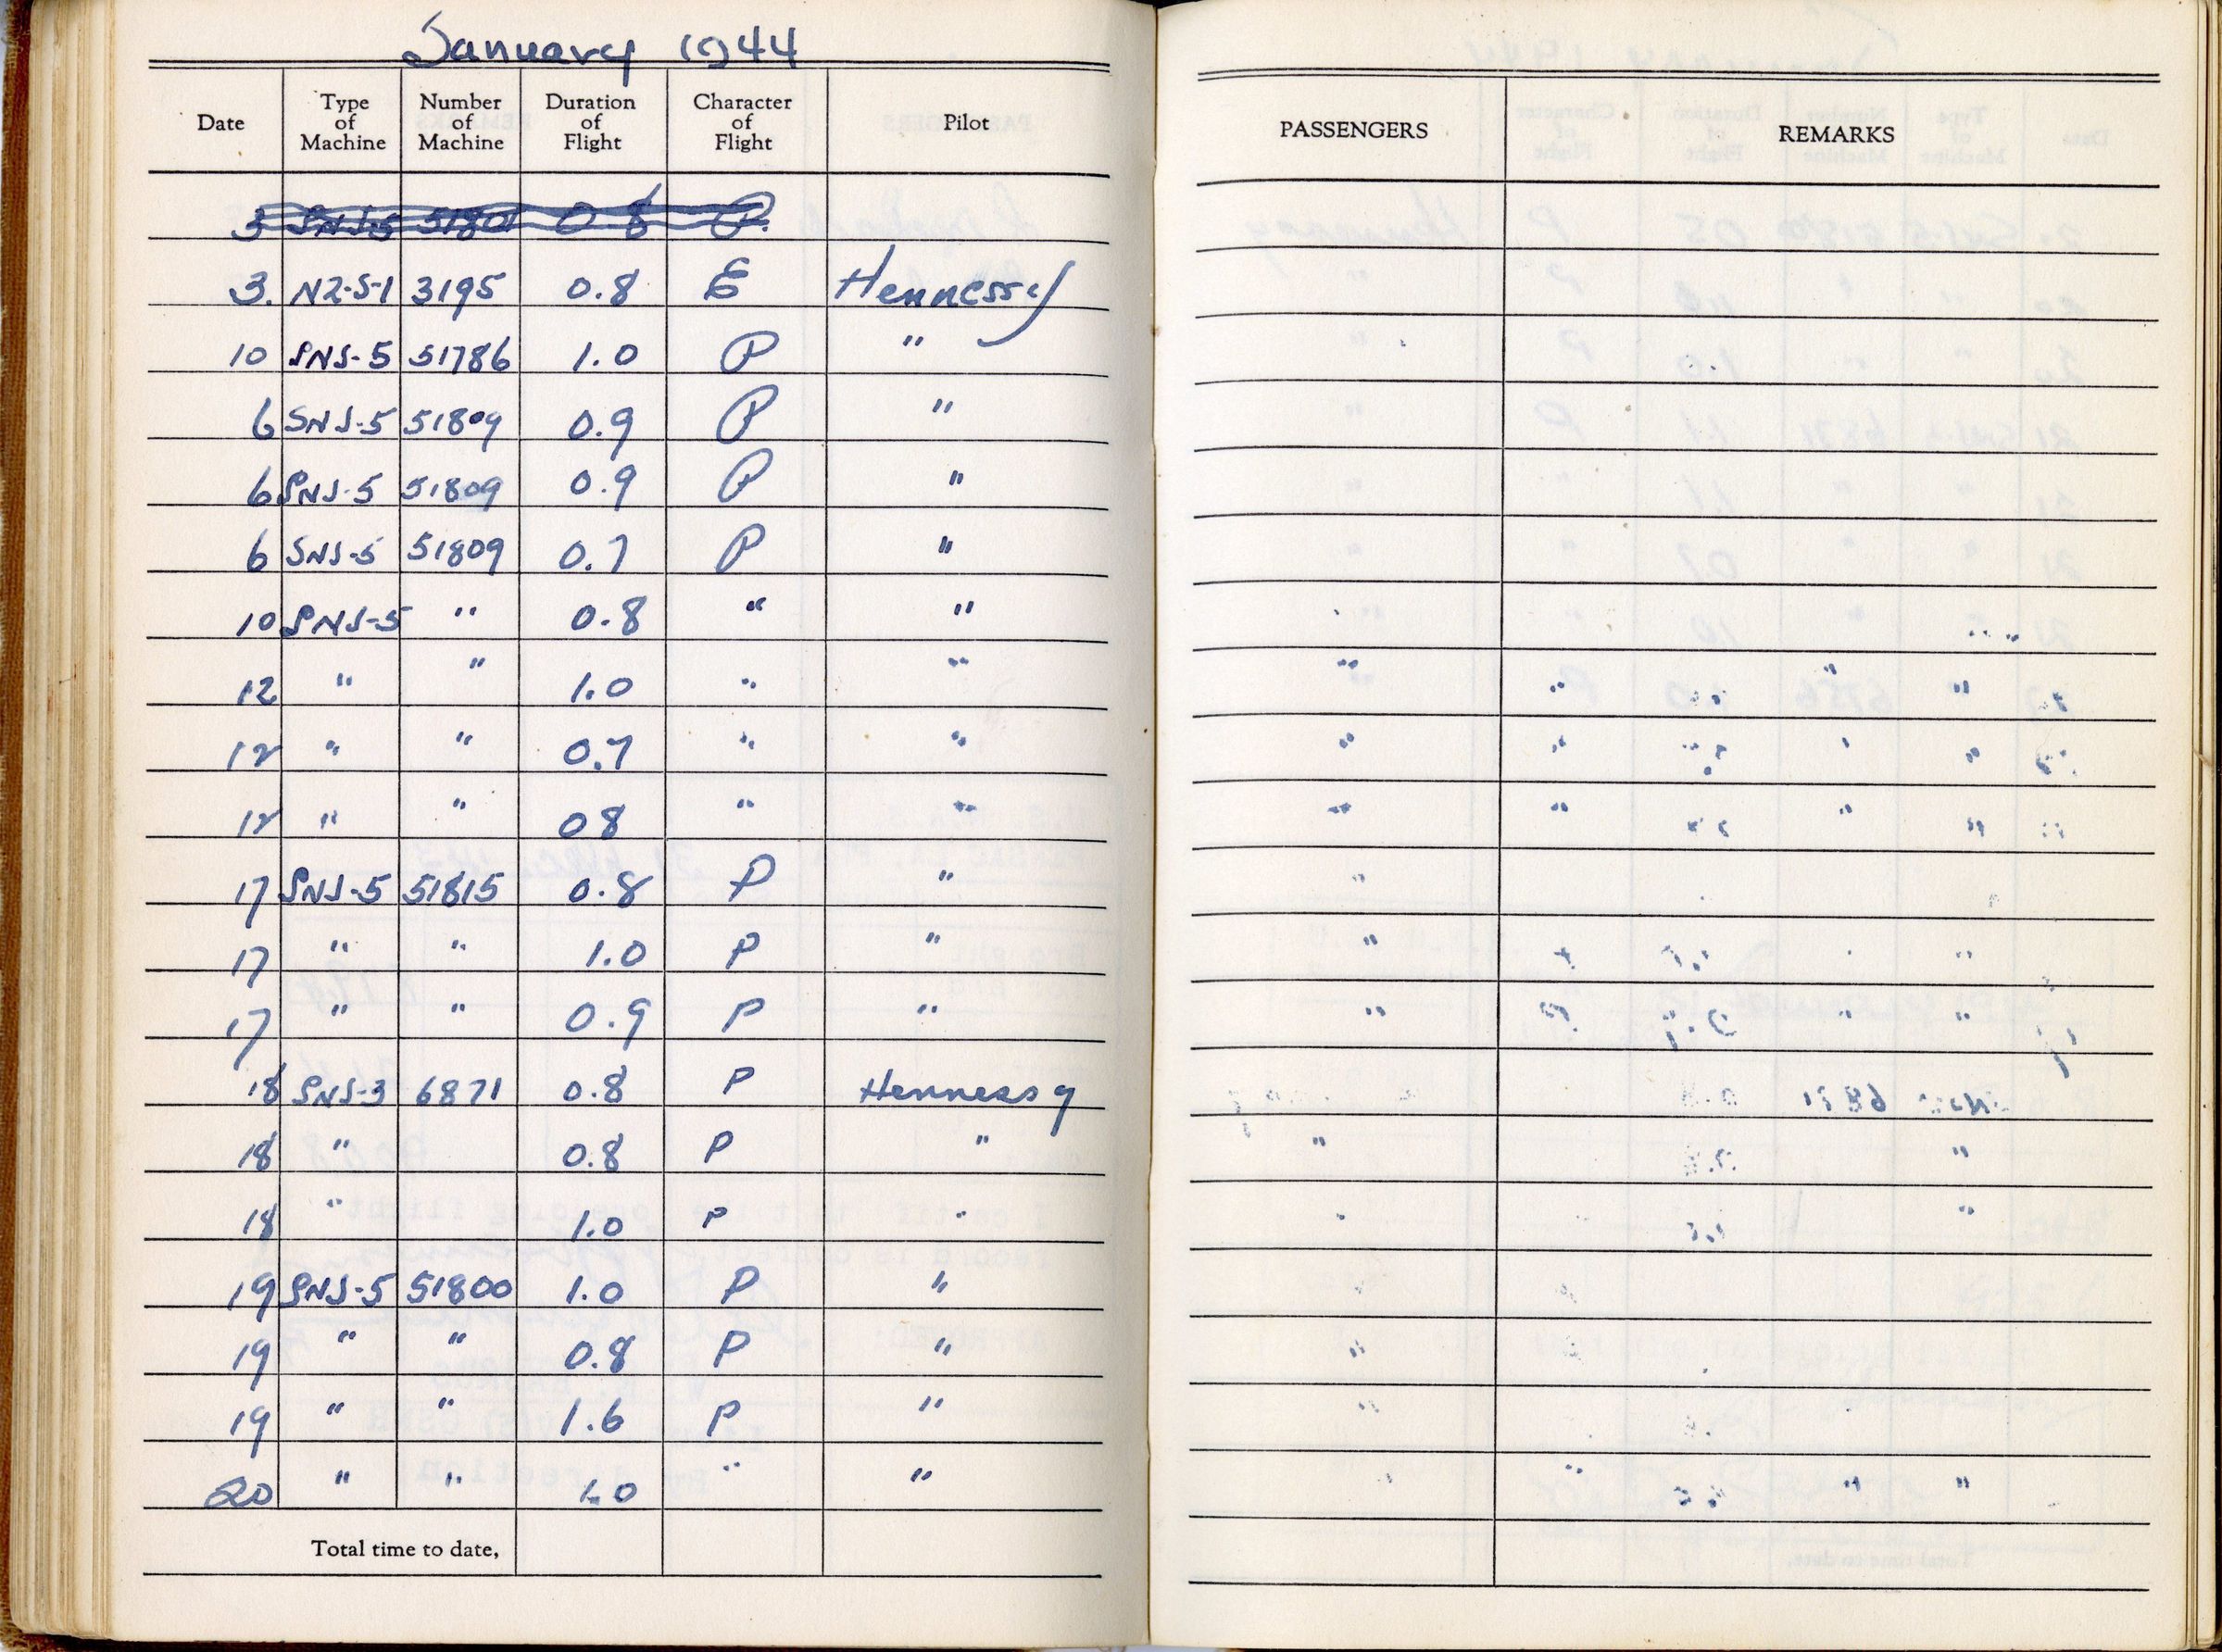 January 1944
Date Type of Machine Number of Machine Duration of Flight Character of Flight Pilot PASSENGERS REMARKS
3 SNJ-5 51801 0.8 P.
3. N2-S-1 3195 0.8 E Hennessy
10 SNJ-5 51786 1.0 P "
6 SNJ-5 51809 0.9 P "
6 SNJ-5 51809 0.9 P "
6 SNJ-5 51809 0.7 P "
10 SNJ-5 " 0.8 " "
12 " " 1.0 " "
12 " " 0.7 " "
12 " " 08 " "
17 SNJ-5 51815 0.8 P "
17 " " 1.0 P "
17 " " 0.9 P "
18 SNJ-3 6871 0.8 P Hennessy
18 " 0.8 P "
18 " 1.0 P "
19 SNJ-5 51800 1.0 P "
19 " " 0.8 P "
19 " " 1.6 P "
20 " " 1.0 " "
Total time to date,